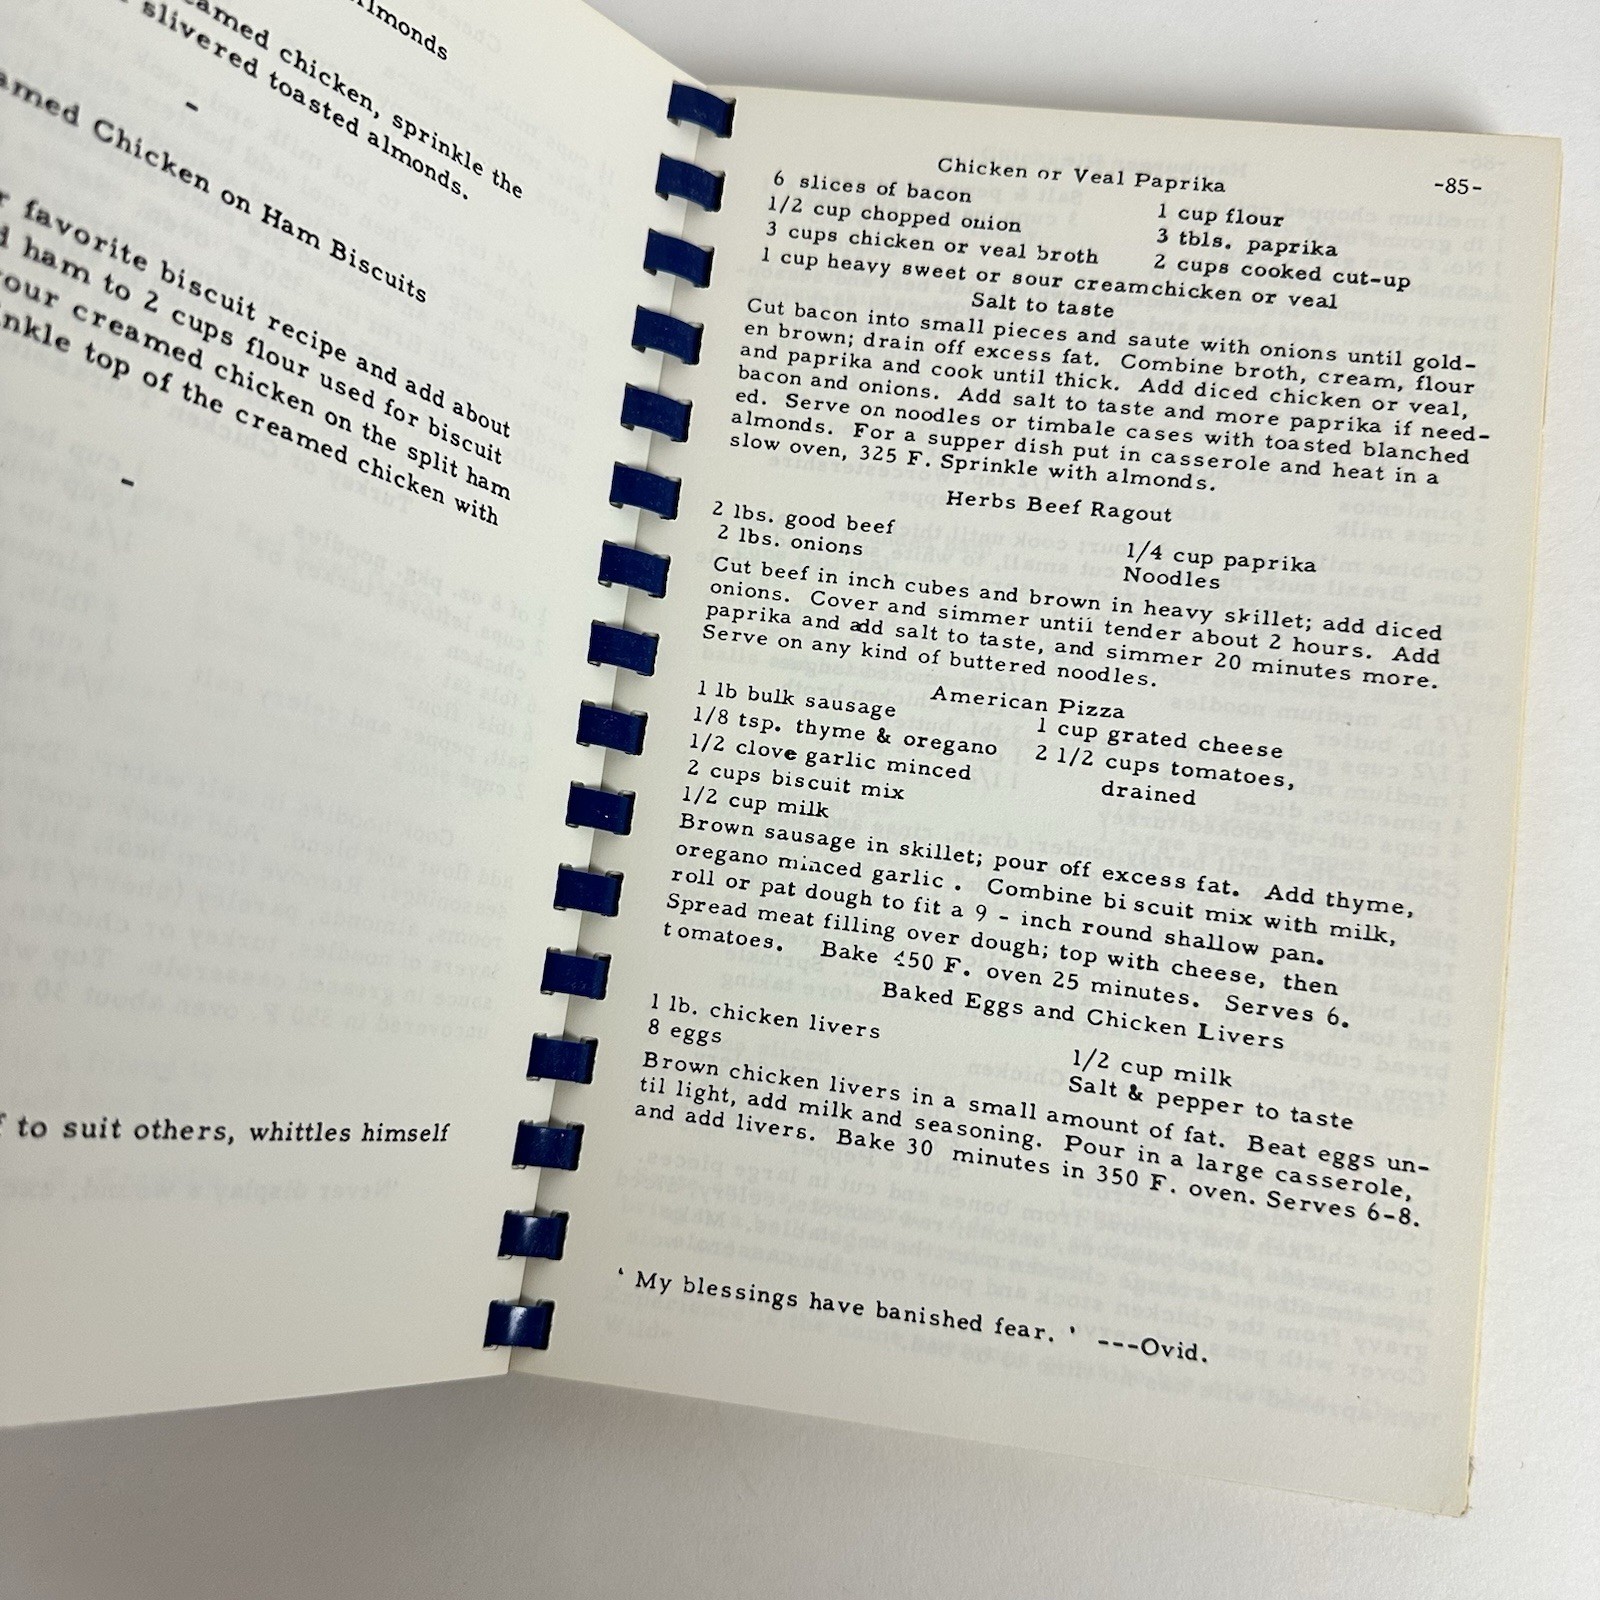 almonds
creamed chicken, sprinkle the
slivered toasted almonds.
-
Chicken on Ham Biscuits
favorite biscuit recipe and add about
ham to 2 cups flour used for biscuit
your creamed chicken on the split ham
top of the creamed chicken with
-
to suit others, whittles himself
-85-
Chicken or Veal Paprika
6 slices of bacon 1 cup flour
1/2 cup chopped onion 3 tbls. paprika
3 cups chicken or veal broth 2 cups cooked cut-up
1 cup heavy sweet or sour cream chicken or veal
Salt to taste
Cut bacon into small pieces and saute with onions until gold-
en brown; drain off excess fat. Combine broth, cream, flour
and paprika and cook until thick. Add diced chicken or veal,
bacon and onions. Add salt to taste and more paprika if need-
ed. Serve on noodles or timbale cases with toasted blanched
almonds. For a supper dish put in casserole and heat in a
slow oven, 325 F. Sprinkle with almonds.
Herbs Beef Ragout
2 lbs. good beef 1/4 cup paprika
2 lbs. onions Noodles
Cut beef in inch cubes and brown in heavy skillet; add diced
onions. Cover and simmer until tender about 2 hours. Add
paprika and add salt to taste, and simmer 20 minutes more.
Serve on any kind of buttered noodles.
American Pizza
1 lb bulk sausage 1 cup grated cheese
1/8 tsp. thyme & oregano 2 1/2 cups tomatoes,
1/2 clove garlic minced drained
2 cups biscuit mix
1/2 cup milk
Brown sausage in skillet; pour off excess fat. Add thyme,
oregano minced garlic . Combine bi scuit mix with milk,
roll or pat dough to fit a 9 - inch round shallow pan.
Spread meat filling over dough; top with cheese, then
tomatoes. Bake 450 F. oven 25 minutes. Serves 6.
Baked Eggs and Chicken Livers
1 lb. chicken livers 1/2 cup milk
8 eggs Salt & pepper to taste
Brown chicken livers in a small amount of fat. Beat eggs un-
til light, add milk and seasoning. Pour in a large casserole,
and add livers. Bake 30 minutes in 350 F. oven. Serves 6-8.
' My blessings have banished fear. ' ---Ovid.